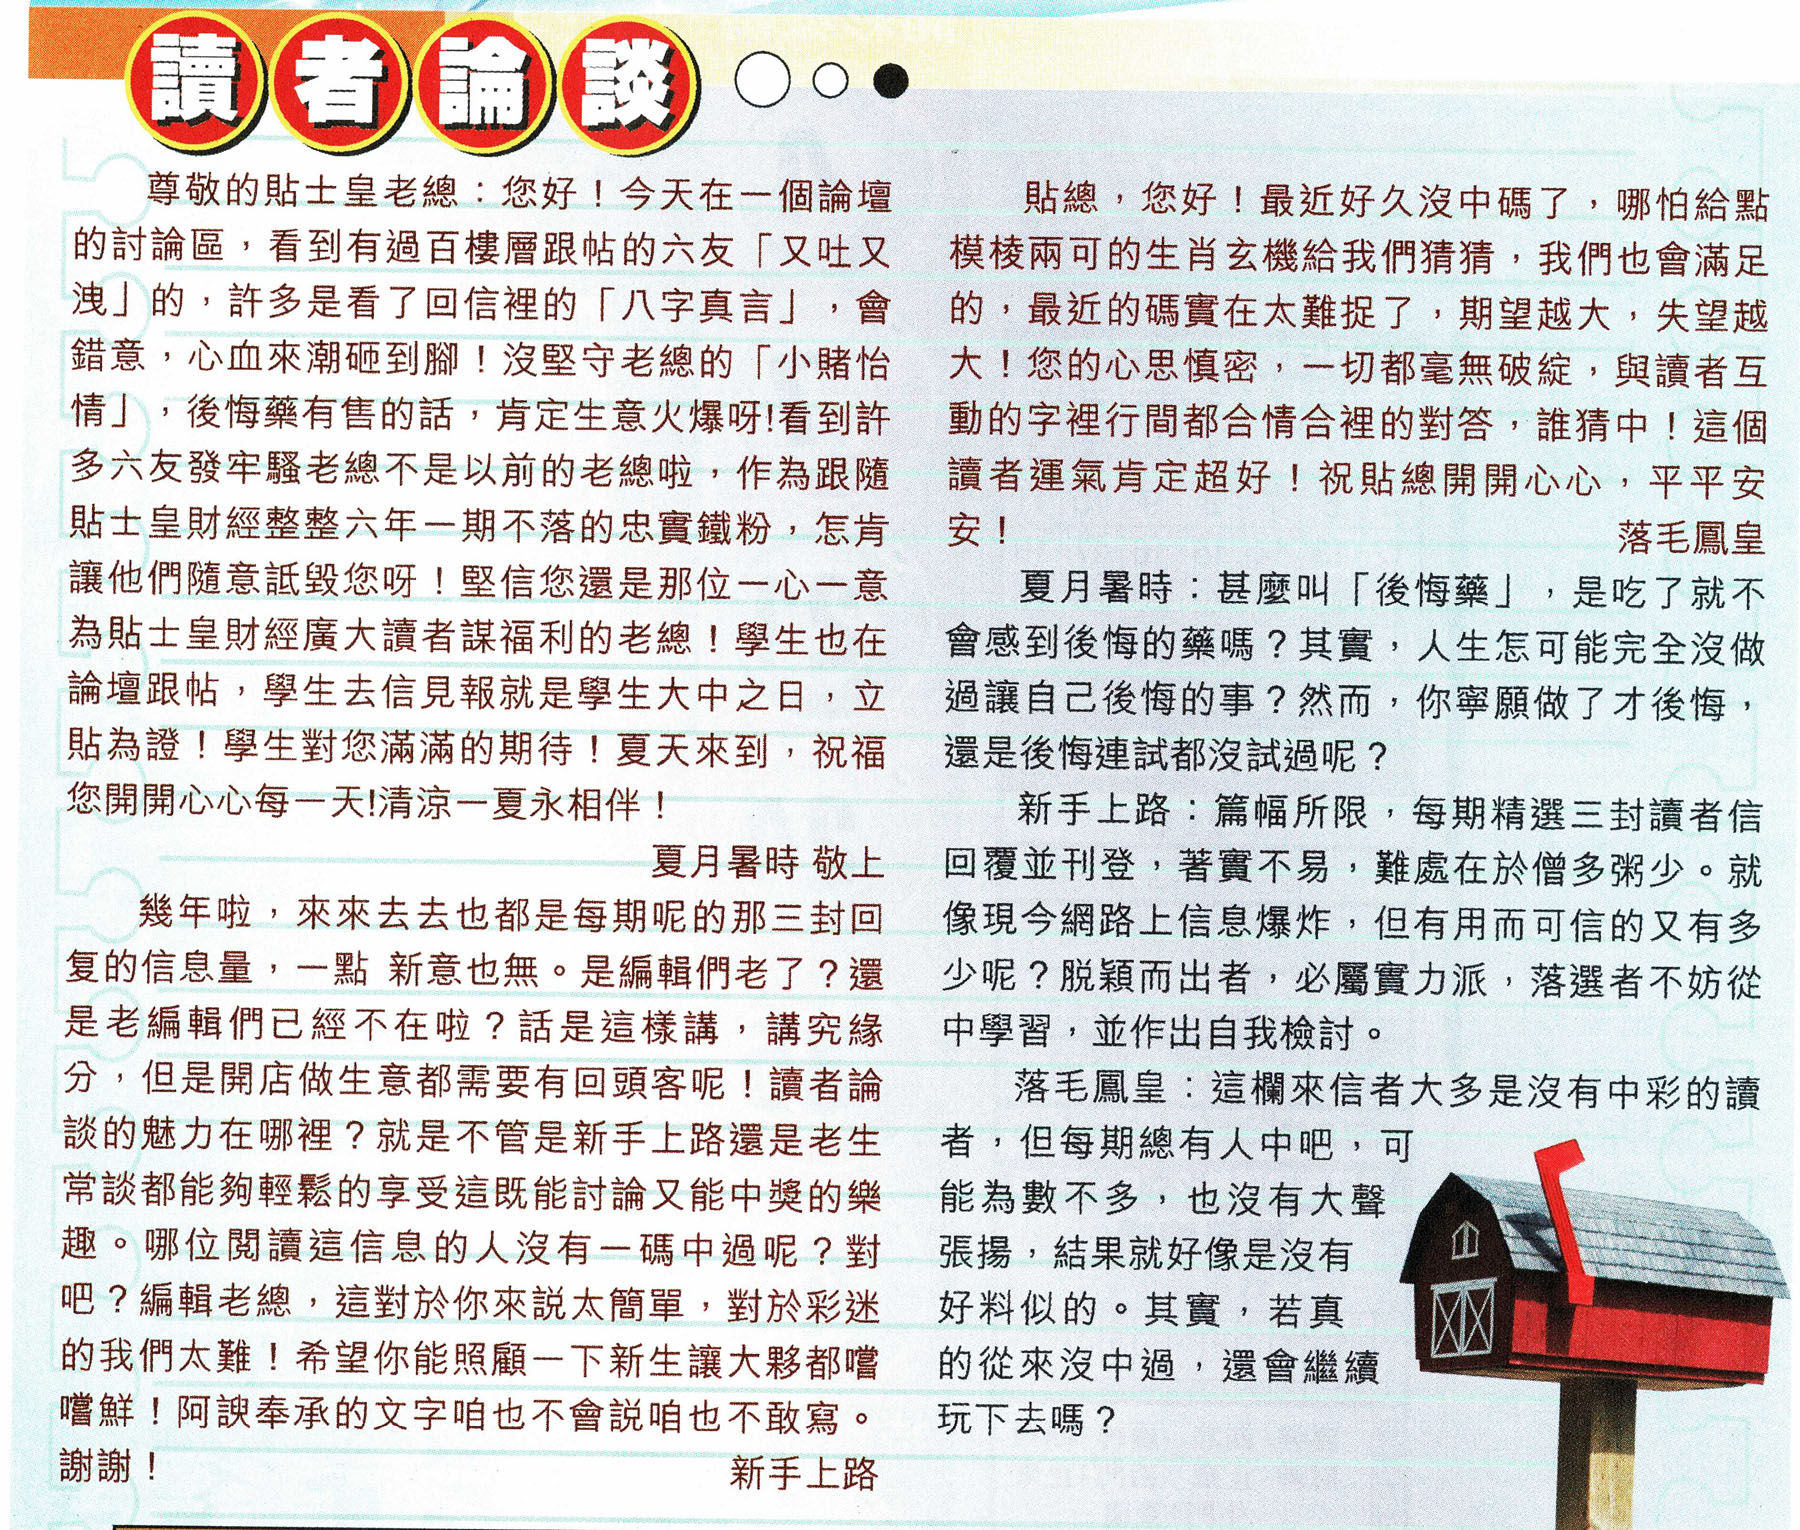 讀者論談
尊敬的貼士皇老總：您好！今天在一個論壇
的討論區，看到有過百樓層跟帖的六友「又吐又
洩」的，許多是看了回信裡的「八字真言」，會
錯意，心血來潮砸到腳！沒堅守老總的「小賭怡
情」，後悔藥有售的話，肯定生意火爆呀!看到許
多六友發牢騷老總不是以前的老總啦，作為跟隨
貼士皇財經整整六年一期不落的忠實鐵粉，怎肯
讓他們隨意詆毀您呀！堅信您還是那位一心一意
為貼士皇財經廣大讀者謀福利的老總！學生也在
論壇跟帖，學生去信見報就是學生大中之日，立
貼為證！學生對您滿滿的期待！夏天來到，祝福
您開開心心每一天!清涼一夏永相伴！
夏月暑時 敬上
幾年啦，來來去去也都是每期呢的那三封回
复的信息量，一點 新意也無。是編輯們老了？還
是老編輯們已經不在啦？話是這樣講，講究緣
分，但是開店做生意都需要有回頭客呢！讀者論
談的魅力在哪裡？就是不管是新手上路還是老生
常談都能夠輕鬆的享受這既能討論又能中獎的樂
趣。哪位閱讀這信息的人沒有一碼中過呢？對
吧？編輯老總，這對於你來説太簡單，對於彩迷
的我們太難！希望你能照顧一下新生讓大夥都嚐
嚐鮮！阿諛奉承的文字咱也不會説咱也不敢寫。
謝謝！
新手上路
貼總，您好！最近好久沒中碼了，哪怕給點
模棱兩可的生肖玄機給我們猜猜，我們也會滿足
的，最近的碼實在太難捉了，期望越大，失望越
大！您的心思慎密，一切都毫無破綻，與讀者互
動的字裡行間都合情合裡的對答，誰猜中！這個
讀者運氣肯定超好！祝貼總開開心心，平平安
安！
落毛鳳皇
夏月暑時：甚麼叫「後悔藥」，是吃了就不
會感到後悔的藥嗎？其實，人生怎可能完全沒做
過讓自己後悔的事？然而，你寧願做了才後悔，
還是後悔連試都沒試過呢？
新手上路：篇幅所限，每期精選三封讀者信
回覆並刊登，著實不易，難處在於僧多粥少。就
像現今網路上信息爆炸，但有用而可信的又有多
少呢？脱穎而出者，必屬實力派，落選者不妨從
中學習，並作出自我檢討。
落毛鳳皇：這欄來信者大多是沒有中彩的讀
者，但每期總有人中吧，可
能為數不多，也沒有大聲
張揚，結果就好像是沒有
好料似的。其實，若真
的從來沒中過，還會繼續
玩下去嗎？